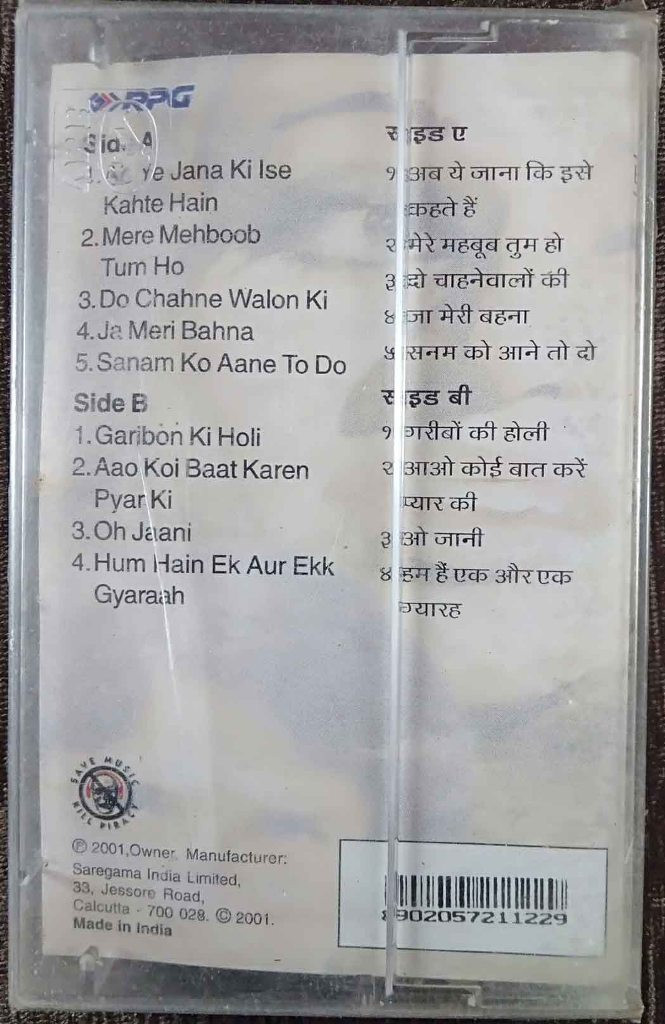 RPG
Side A
1. Ab Ye Jana Ki Ise
Kahte Hain
2. Mere Mehboob
Tum Ho
3. Do Chahne Walon Ki
4. Ja Meri Bahna
5. Sanam Ko Aane To Do
Side B
1. Garibon Ki Holi
2. Aao Koi Baat Karen
Pyar Ki
3. Oh Jaani
4. Hum Hain Ek Aur Ekk
Gyaraah
साइड ए
१ अब ये जाना कि इसे
कहते हैं
२ मेरे महबूब तुम हो
३ दो चाहनेवालों की
४ जा मेरी बहना
५ सनम को आने तो दो
साइड बी
१ गरीबों की होली
२ आओ कोई बात करें
प्यार की
३ ओ जानी
४ हम हैं एक और एक
ग्यारह
SAVE MUSIC
KILL PIRACY
℗ 2001, Owner. Manufacturer:
Saregama India Limited,
33, Jessore Road,
Calcutta - 700 028. © 2001.
Made in India
8902057211229